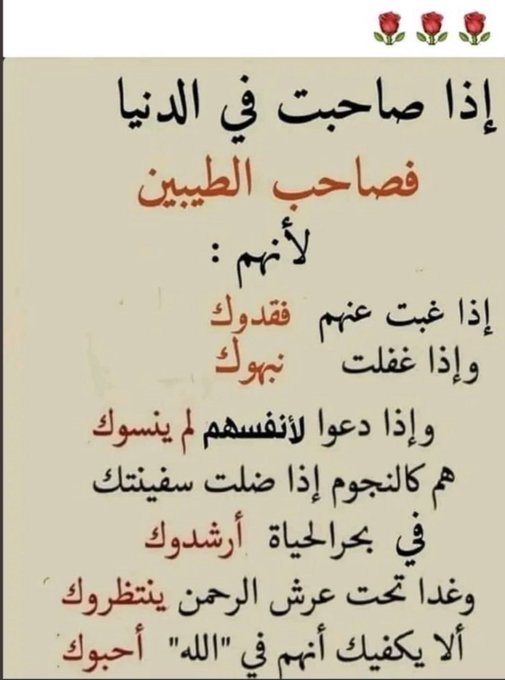 إذا صاحبت في الدنيا
فصاحب الطيبين
لأنهم :
إذا غبت عنهم فقدوك
وإذا غفلت نبهوك
وإذا دعوا لأنفسهم لم ينسوك
هم كالنجوم إذا ضلت سفينتك
في بحر الحياة أرشدوك
وغدا تحت عرش الرحمن ينتظروك
ألا يكفيك أنهم في "الله" أحبوك